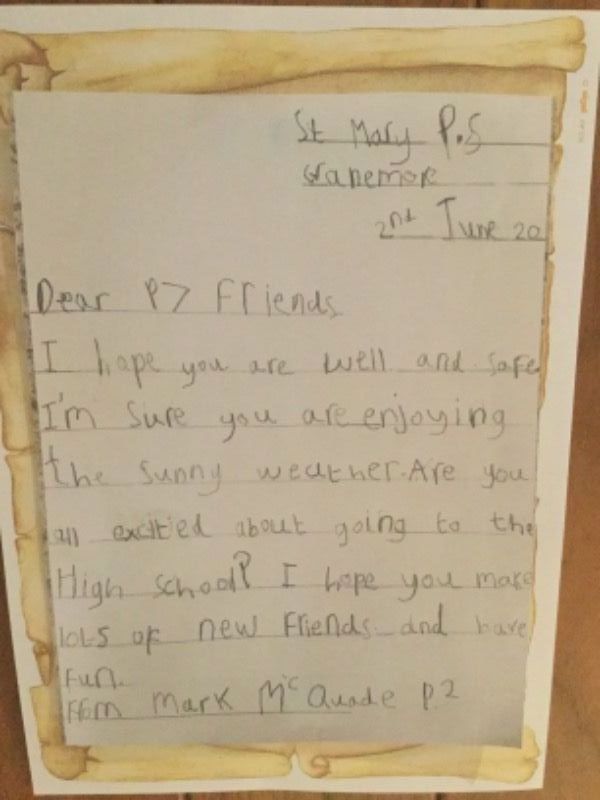 St Mary P.S
Granemore
2nd June 20
Dear P7 Friends
I hope you are well and safe
I'm sure you are enjoying
the sunny weather. Are you
all excitied about going to the
High school? I hope you make
lots of new friends and have
fun.
from Mark McQuade P.2